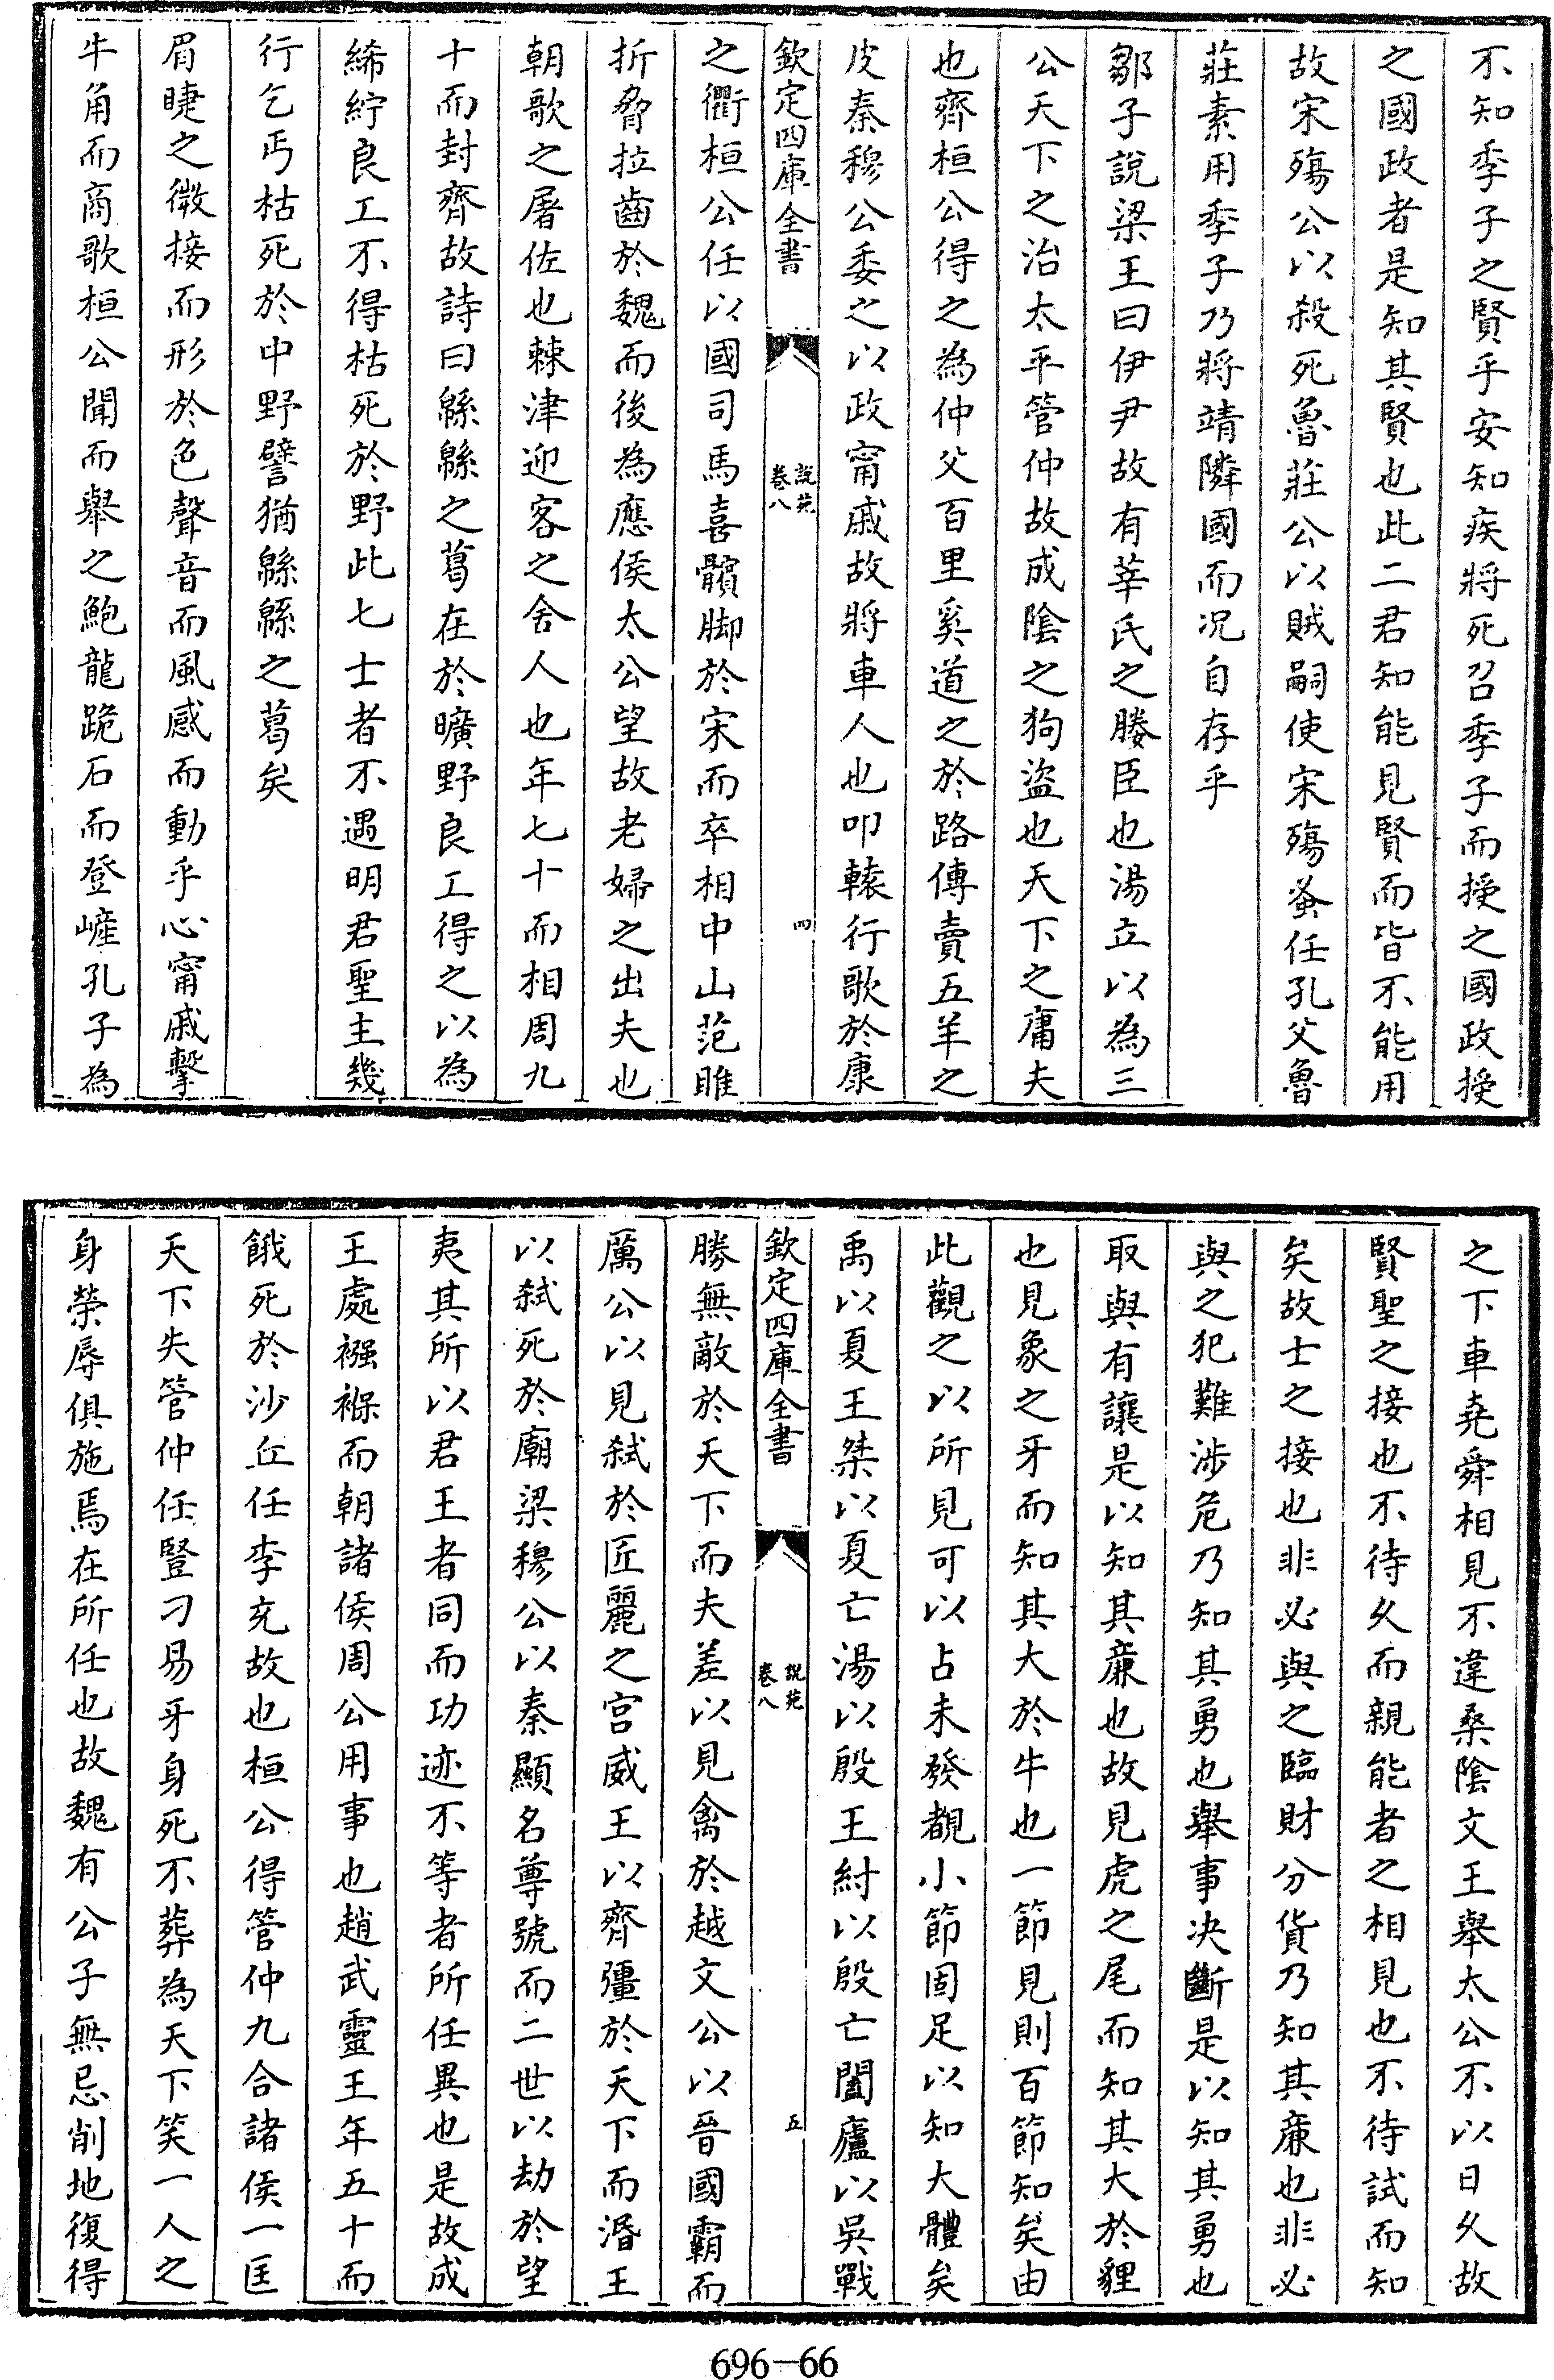 不知季子之賢乎安知疾將死召季子而授之國政授
之國政者是知其賢也此二君知能見賢而皆不能用
故宋殤公以殺死魯莊公以賊嗣使宋殤蚤任孔父魯
莊素用季子乃將靖隣國而况自存乎
鄒子說梁王曰伊尹故有莘氏之媵臣也湯立以為三
公天下之治太平管仲故成陰之狗盜也天下之庸夫
也齊桓公得之為仲父百里奚道之於路傳賣五羊之
皮秦穆公委之以政甯戚故將車人也叩轅行歌於康
欽定四庫全書
說苑
卷八
四
之衢桓公任以國司馬喜髕脚於宋而卒相中山范雎
折脅拉齒於魏而後為應侯太公望故老婦之出夫也
朝歌之屠佐也棘津迎客之舍人也年七十而相周九
十而封齊故詩曰緜緜之葛在於曠野良工得之以為
絺紵良工不得枯死於野此七士者不遇明君聖主幾
行乞丐枯死於中野譬猶緜緜之葛矣
眉睫之微接而形於色聲音而風感而動乎心甯戚擊
牛角而商歌桓公聞而舉之鮑龍跪石而登嵼孔子為
之下車堯舜相見不違桑陰文王舉太公不以日久故
賢聖之接也不待久而親能者之相見也不待試而知
矣故士之接也非必與之臨財分貨乃知其廉也非必
與之犯難涉危乃知其勇也舉事决斷是以知其勇也
取與有讓是以知其廉也故見虎之尾而知其大於貍
也見象之牙而知其大於牛也一節見則百節知矣由
此觀之以所見可以占未發覩小節固足以知大體矣
禹以夏王桀以夏亡湯以殷王紂以殷亡闔廬以吳戰
欽定四庫全書
說苑
卷八
五
勝無敵於天下而夫差以見禽於越文公以晉國霸而
厲公以見弑於匠麗之宮威王以齊彊於天下而湣王
以弑死於廟梁穆公以秦顯名尊號而二世以劫於望
夷其所以君王者同而功迹不等者所任異也是故成
王處襁褓而朝諸侯周公用事也趙武靈王年五十而
餓死於沙丘任李兖故也桓公得管仲九合諸侯一匡
天下失管仲任豎刁易牙身死不葬為天下笑一人之
身榮辱俱施焉在所任也故魏有公子無忌削地復得
696—66